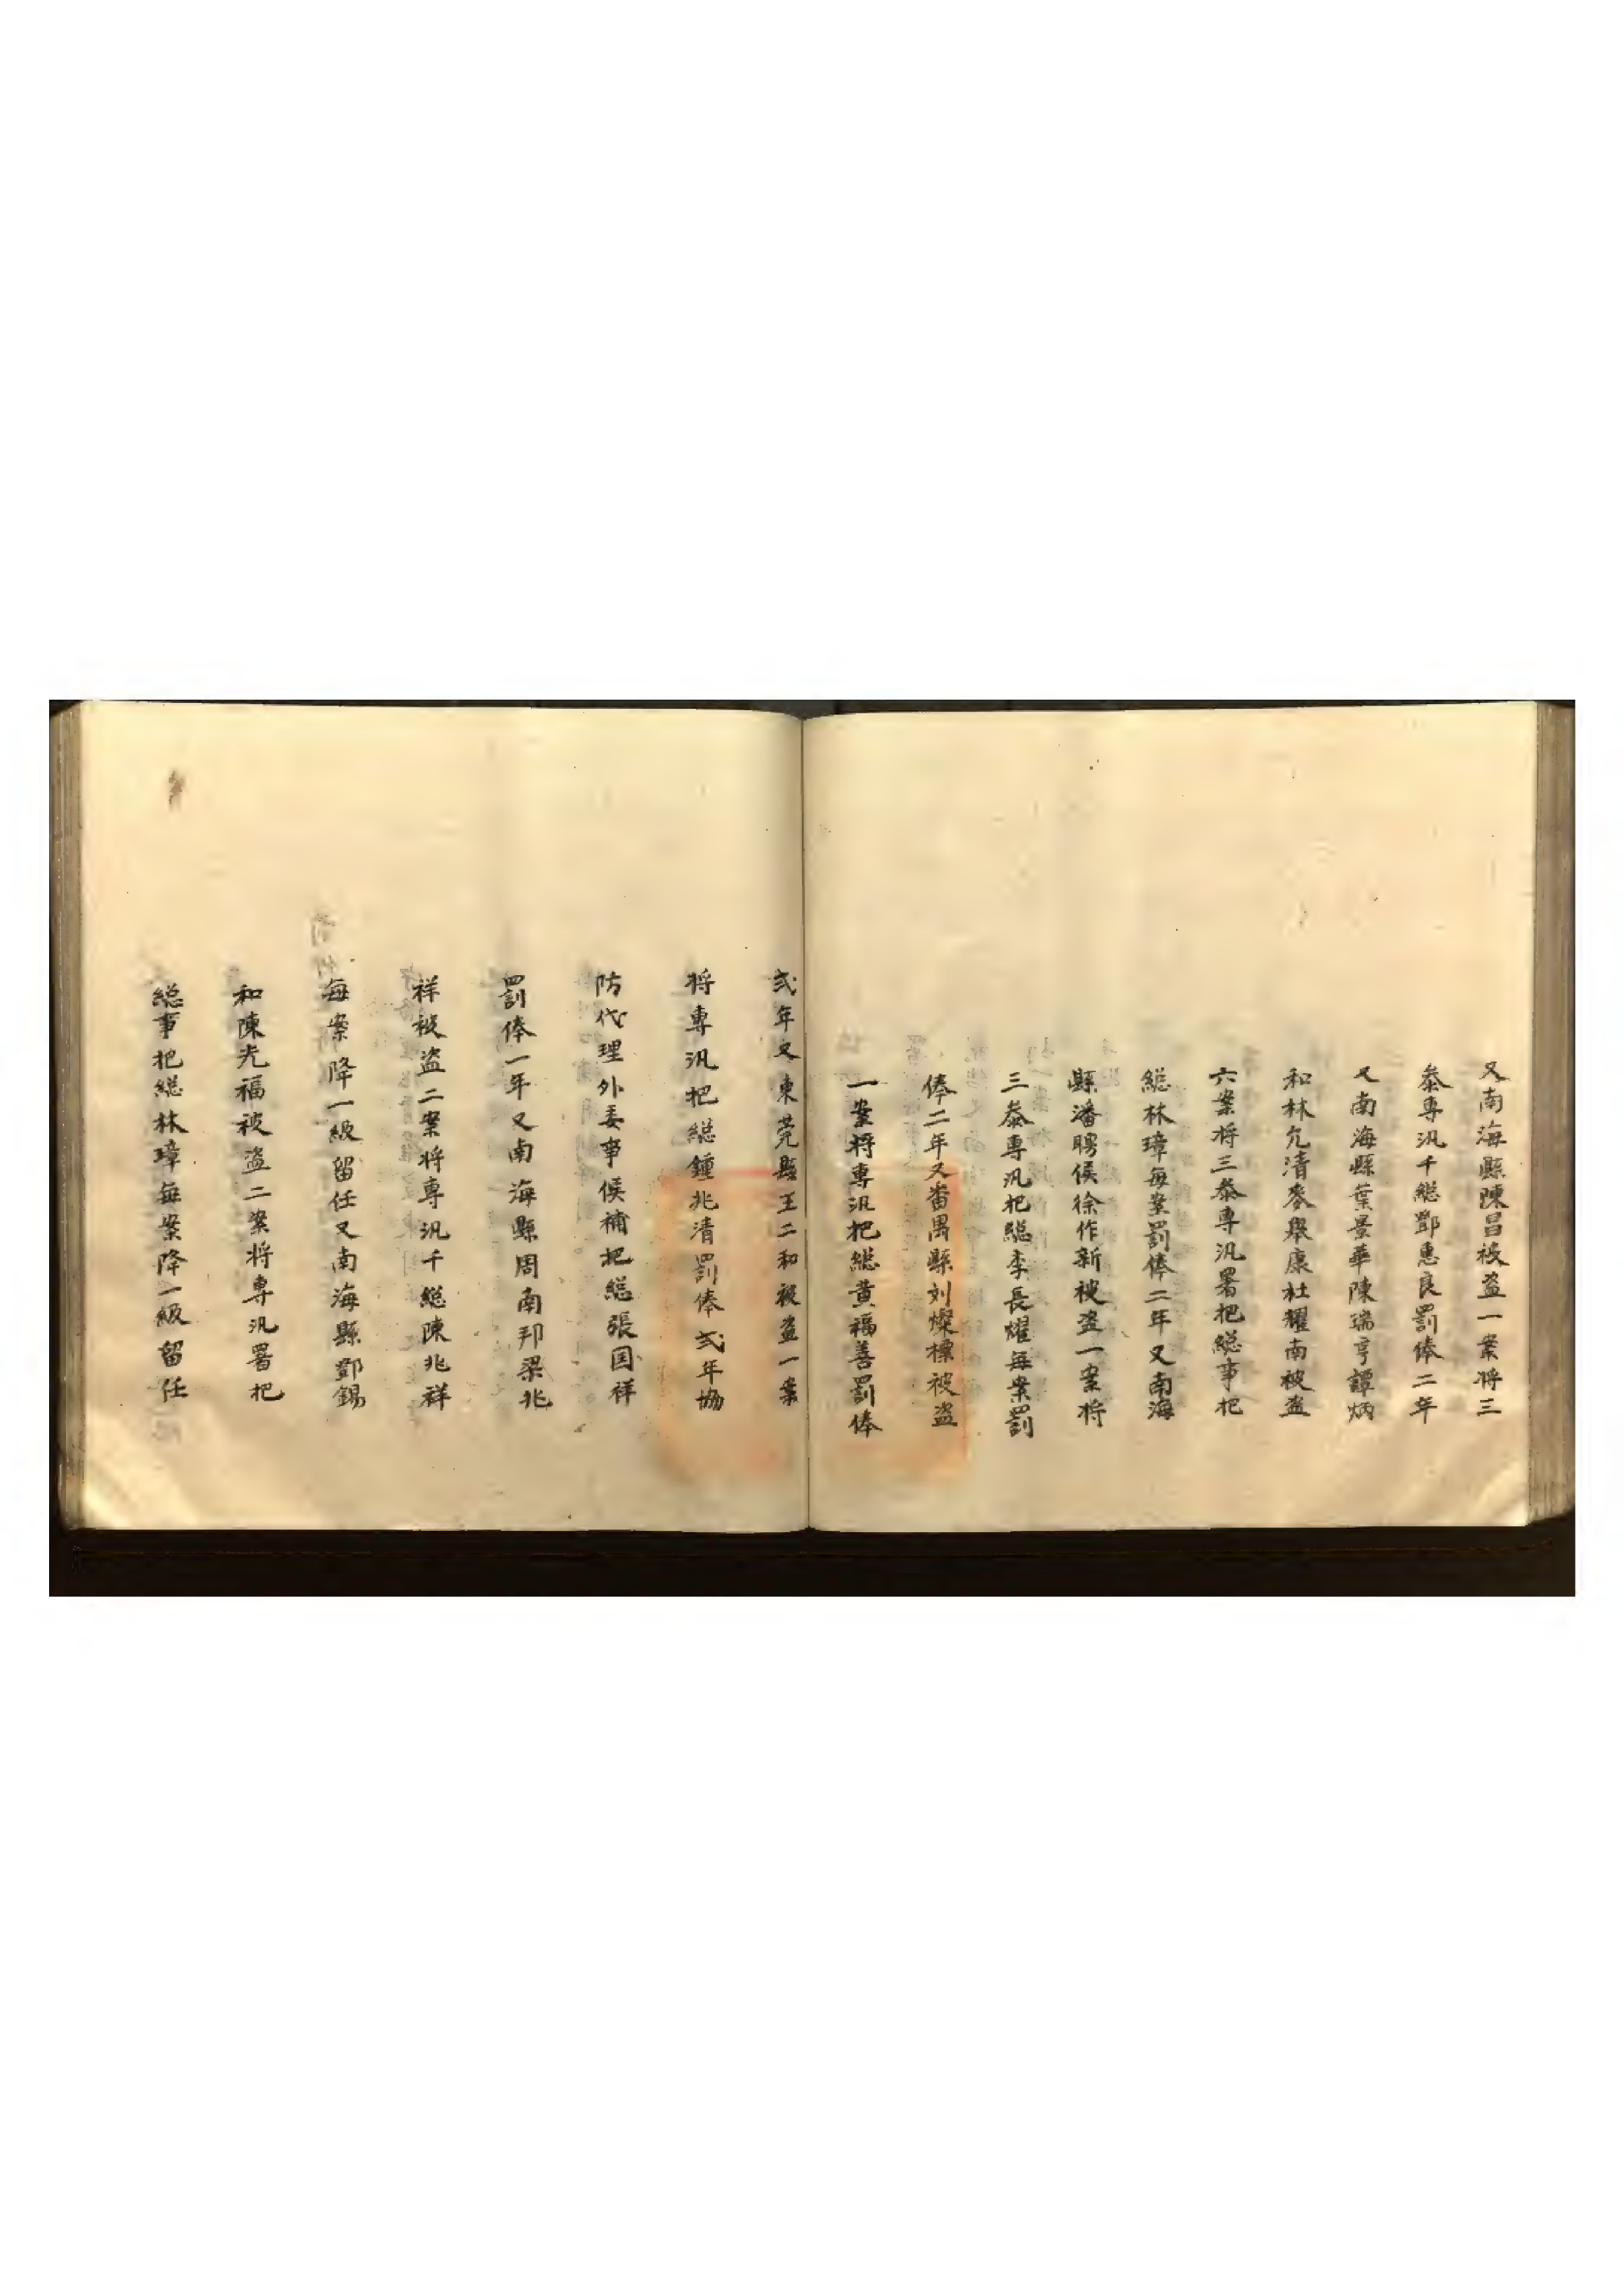 又南海縣陳昌被盜一案将三
叅專汎千総鄧惠良罰俸二年
又南海縣葉景華陳瑞亨譚炳
和林允清麥舉康杜耀南被盜
六案将三叅專汎署把総事把
総林璋每案罰俸二年又南海
縣潘聘侯徐作新被盜一案将
三叅專汎把総李長耀每案罰
俸二年又畨禺縣刘燦標被盜
一案将專汎把総黄福善罰俸
弍年又東莞縣王二和被盜一案
将專汎把総鍾兆清罰俸弍年協
防代理外委事候補把総張国祥
罰俸一年又南海縣周南邦梁兆
祥被盜二案将專汎千総陳兆祥
每案降一級留任又南海縣鄧錫
和陳光福被盜二案将專汎署把
総事把総林璋每案降一級留任